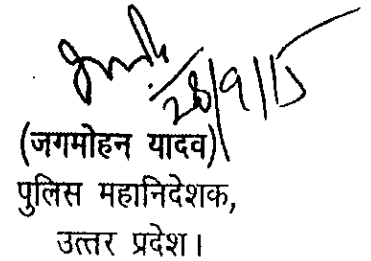 28/9/15
(जगमोहन यादव)
पुलिस महानिदेशक,
उत्तर प्रदेश।